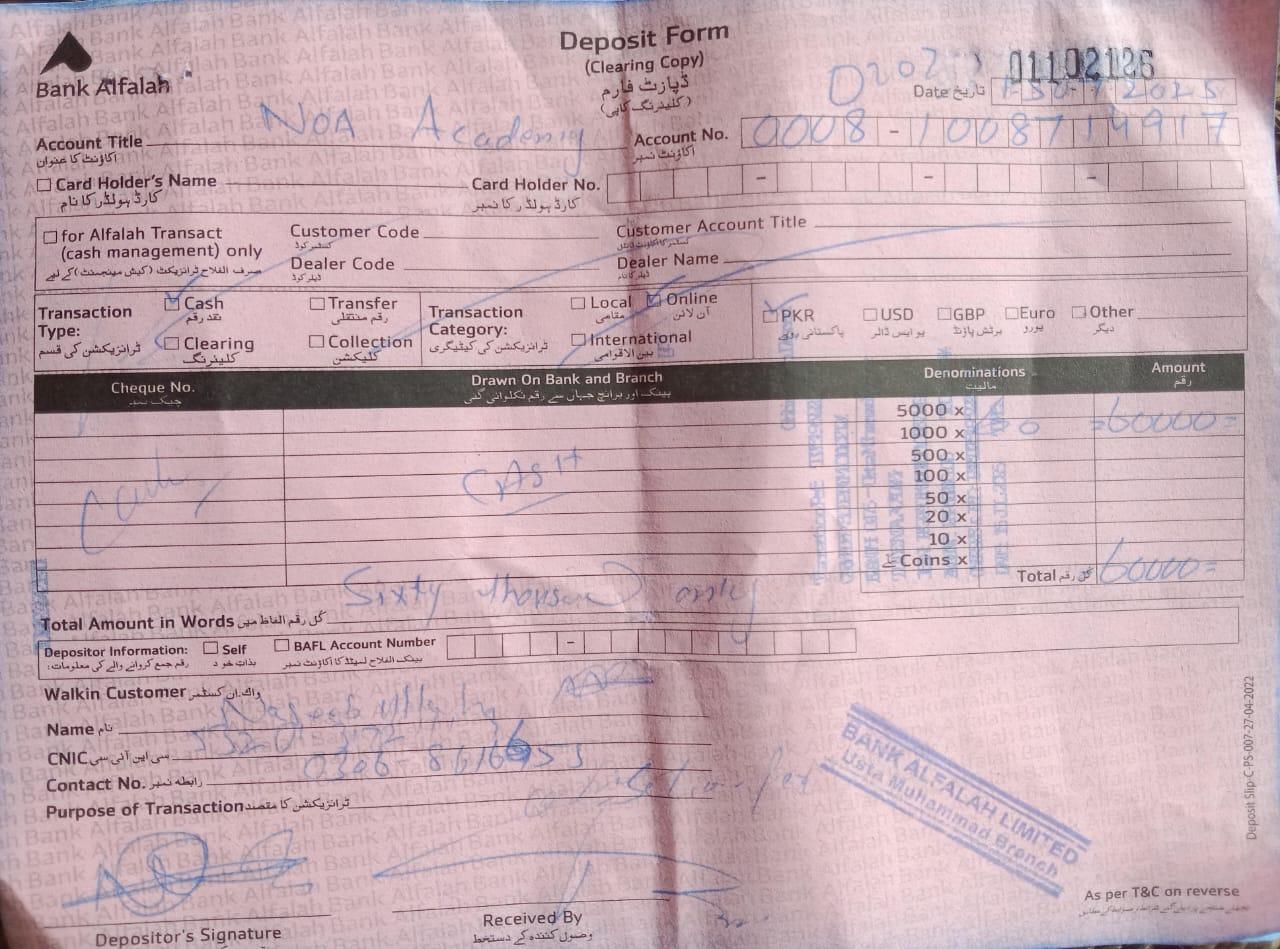 Bank Alfalah
Deposit Form
(Clearing Copy)
ڈپازٹ فارم
(کلیئرنگ کاپی)
01102126
Date تاریخ
Account Title NOA Academy
اکاؤنٹ کا عنوان
Account No. 0008 - 1008714917
اکاؤنٹ نمبر
Card Holder's Name
کارڈ ہولڈر کا نام
Card Holder No.
کارڈ ہولڈر کا نمبر
for Alfalah Transact
(cash management) only
صرف الفلاح ٹرانزیکٹ (کیش مینجمنٹ) کے لیے
Customer Code
کسٹمر کوڈ
Customer Account Title
Dealer Code
ڈیلر کوڈ
Dealer Name
ڈیلر کا نام
Transaction Type:
ٹرانزیکشن کی قسم
Cash
نقد رقم
Transfer
رقم منتقلی
Clearing
کلیئرنگ
Collection
کلیکشن
Transaction Category:
ٹرانزیکشن کی کیٹیگری
Local
مقامی
Online
آن لائن
International
بین الاقوامی
PKR
پاکستانی روپے
USD
یو ایس ڈالر
GBP
برٹش پاؤنڈ
Euro
یورو
Other
دیگر
Cheque No.
چیک نمبر
Drawn On Bank and Branch
بینک اور برانچ جہاں سے رقم نکلوائی گئی
Denominations
مالیت
Amount
رقم
5000 x
1000 x
=60000=
500 x
100 x
50 x
20 x
10 x
Coins x سکے
Cash
CASH
Total کل رقم 60000=
Total Amount in Words کل رقم الفاظ میں Sixty thousand only
Depositor Information:
رقم جمع کروانے والے کی معلومات:
Self
بذات خود
BAFL Account Number
بینک الفلاح لمیٹڈ کا اکاؤنٹ نمبر
Walkin Customer واک ان کسٹمر
Name نام
CNIC سی این آئی سی
Contact No. رابطہ نمبر
Purpose of Transaction ٹرانزیکشن کا مقصد
BANK ALFALAH LIMITED
Usta Muhammad Branch
Deposit Slip-C-PS-007-27-04-2022
As per T&C on reverse
Depositor's Signature
Received By
وصول کنندہ کے دستخط